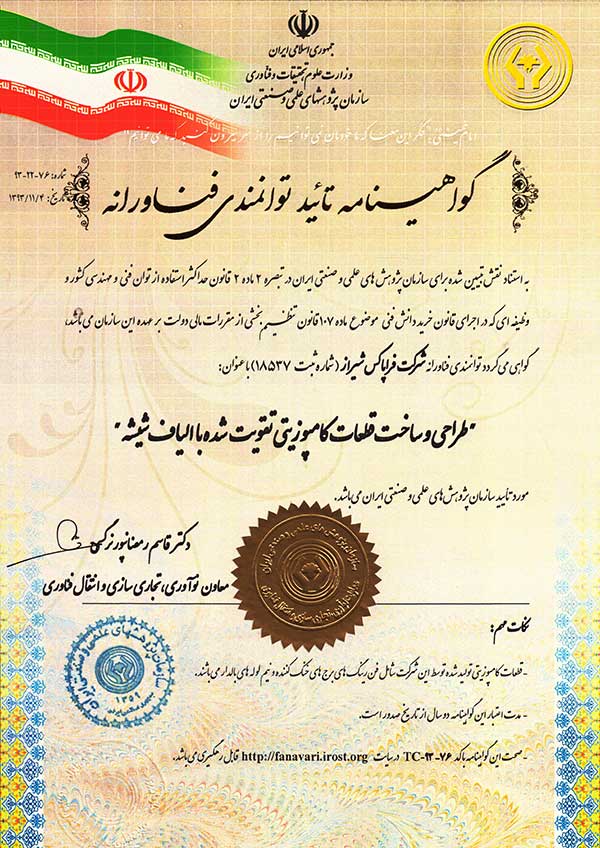 جمهوری اسلامی ایران
وزارت علوم، تحقیقات و فناوری
سازمان پژوهشهای علمی و صنعتی ایران
شماره: ۷۶-۲۲-۹۳
تاریخ: ۱۳۹۳/۱۱/۴
گواهینامه تائید توانمندی فناورانه
به استناد نقش تبیین شده برای سازمان پژوهش های علمی و صنعتی ایران در تبصره ۲ ماده ۲ قانون حداکثر استفاده از توان فنی و مهندسی کشور و
وظیفه ای که در اجرای قانون خرید دانش فنی موضوع ماده ۱۰۷ قانون تنظیم بخشی از مقررات مالی دولت بر عهده این سازمان می باشد،
گواهی می گردد توانمندی فناورانه شرکت فراپاکس شیراز (شماره ثبت ۱۸۵۳۷) با عنوان:
"طراحی و ساخت قطعات کامپوزیتی تقویت شده با الیاف شیشه"
مورد تأیید سازمان پژوهش های علمی و صنعتی ایران می باشد.
دکتر قاسم رمضانپور نرگسی
معاون نوآوری، تجاری سازی و انتقال فناوری
سازمان پژوهشهای علمی و صنعتی ایران
۱۳۵۹
نکات مهم:
- قطعات کامپوزیتی تولید شده توسط این شرکت شامل فن رینگ های برج های خنک کننده و نیم لوله های بالدار می باشند.
- مدت اعتبار این گواهینامه دو سال از تاریخ صدور است.
- صحت این گواهینامه با کد TC-۹۳-۷۶ در سایت http://fanavari.irost.org قابل رهگیری می باشد.